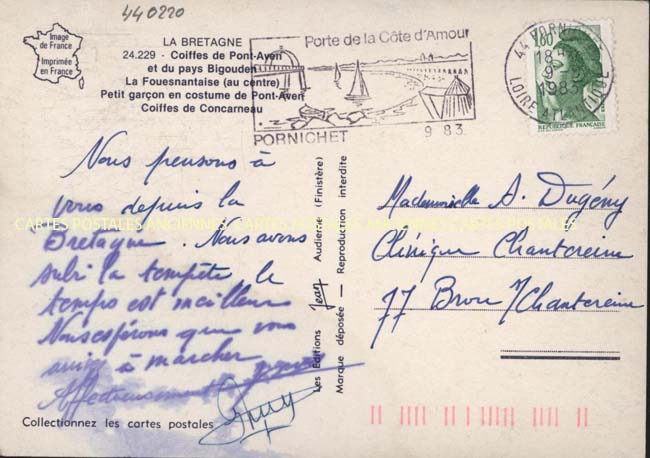 440220
Image
de France
Imprimée
en France
LA BRETAGNE
24.229 - Coiffes de Pont-Aven
et du pays Bigouden
La Fouesnantaise (au centre)
Petit garçon en costume de Pont-Aven
Coiffes de Concarneau
Porte de la Côte d'Amour
PORNICHET
9 83
44 PORNIC
18 H
9
1983
LOIRE ATLANTIQUE
1,80
REPUBLIQUE FRANÇAISE
Nous pensons à
vous depuis la
Bretagne. Nous avons
subi la tempête, le
temps est meilleur
Nous espérons que vous
arrivez à marcher
Affectueusement
Les Editions Jean Audierne (Finistère)
Marque déposée — Reproduction interdite
Mademoiselle A. Dugény
Clinique Chantereine
77 Brou s/Chantereine
CARTES POSTALES ANCIENNES CARTES POSTALES ANCIENNES CARTES POSTALES
Collectionnez les cartes postales